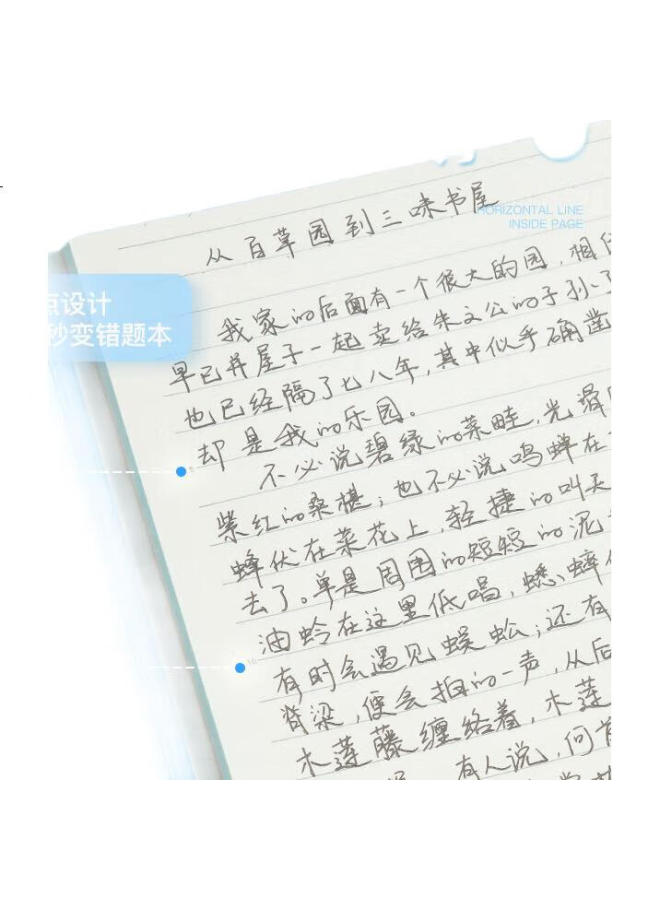 从百草园到三味书屋
HORIZONTAL LINE
INSIDE PAGE
点设计
秒变错题本
我家的后面有一个很大的园，相
早已并屋子一起卖给朱文公的子孙了
也已经隔了七八年，其中似乎确凿
却是我的乐园。
不必说碧绿的菜畦，光滑
紫红的桑椹；也不必说鸣蝉在
蜂伏在菜花上，轻捷的叫天
去了。单是周围的短短的泥
油蛉在这里低唱，蟋蟀
有时会遇见蜈蚣；还有
脊梁，便会拍的一声，从后
木莲藤缠络着，木莲
有人说，何首